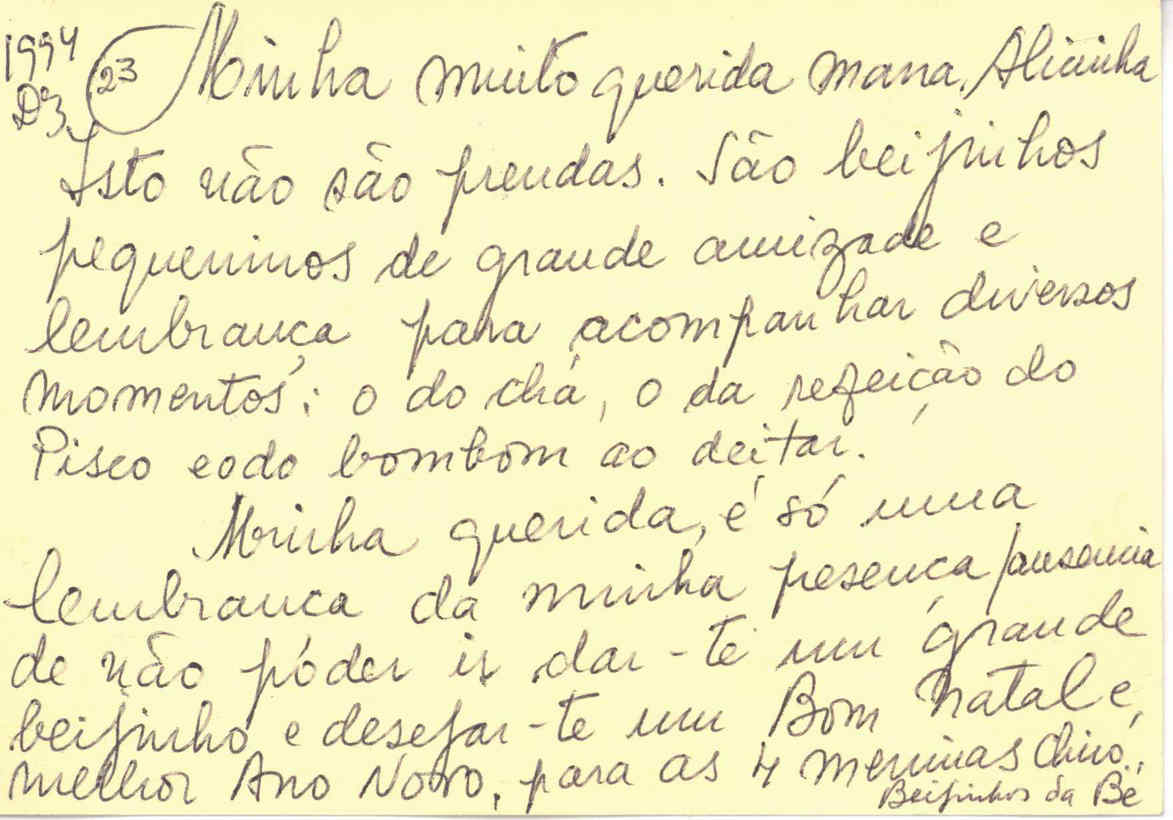 1994
Dº 3
23 Minha muito querida mana, Alicinha
Isto não são prendas. São beijinhos
pequeninos de grande amizade e
lembrança para acompanhar diversos
momentos: o do chá, o da refeição do
Pisco e o do bombom ao deitar.
Minha querida, é só uma
lembrança da minha presença / ausencia
de não póder ir dar-te um grande
beijinho e desejar-te um Bom Natal e,
melhor Ano Novo, para as 4 meninas
Beijinhos da Bé